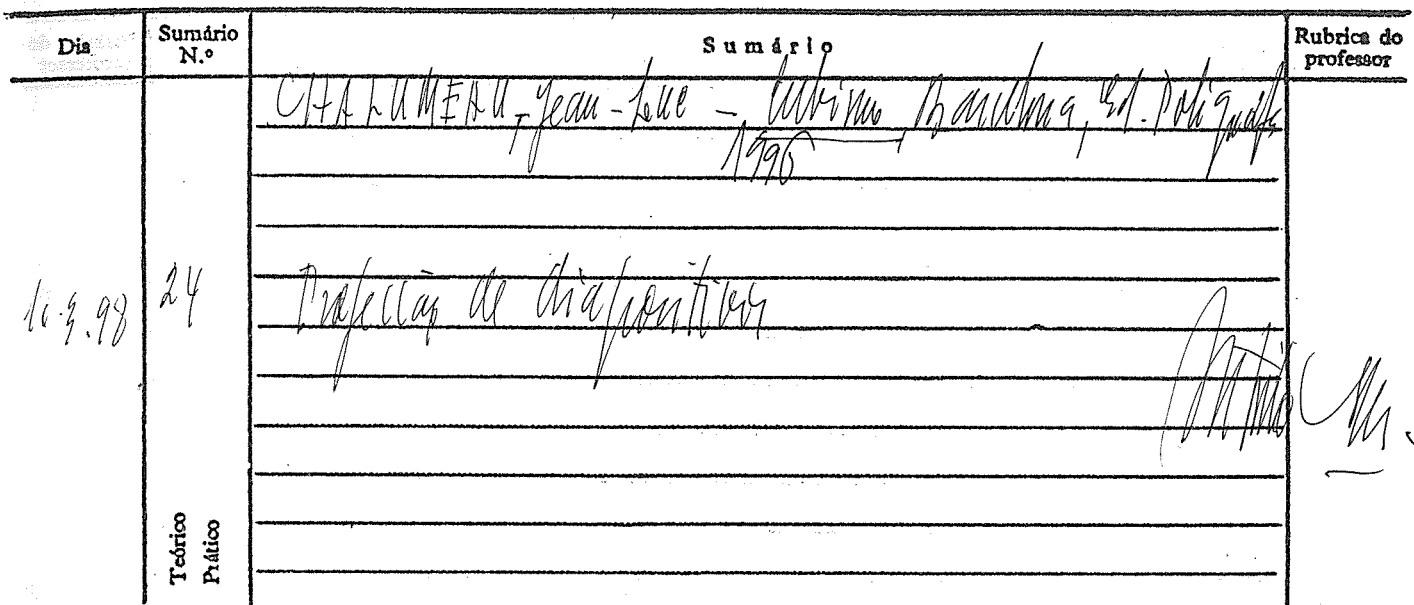 Dia Sumário N.º Sumário Rubrica do professor
CHALUMEAU, Jean-Luc - Cubismo, Barcelona, Ed. Polígrafa
1996
24 Projecção de diapositivos
Teórico
Prático